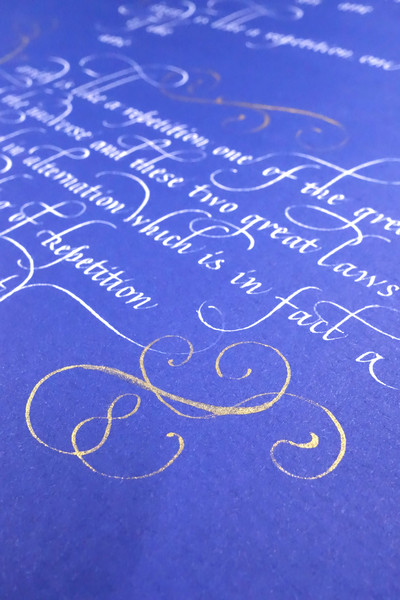 is like a repetition one
is like a repetition one of the grea
the universe and these two great laws
in alternation which is in fact a
of Repetition